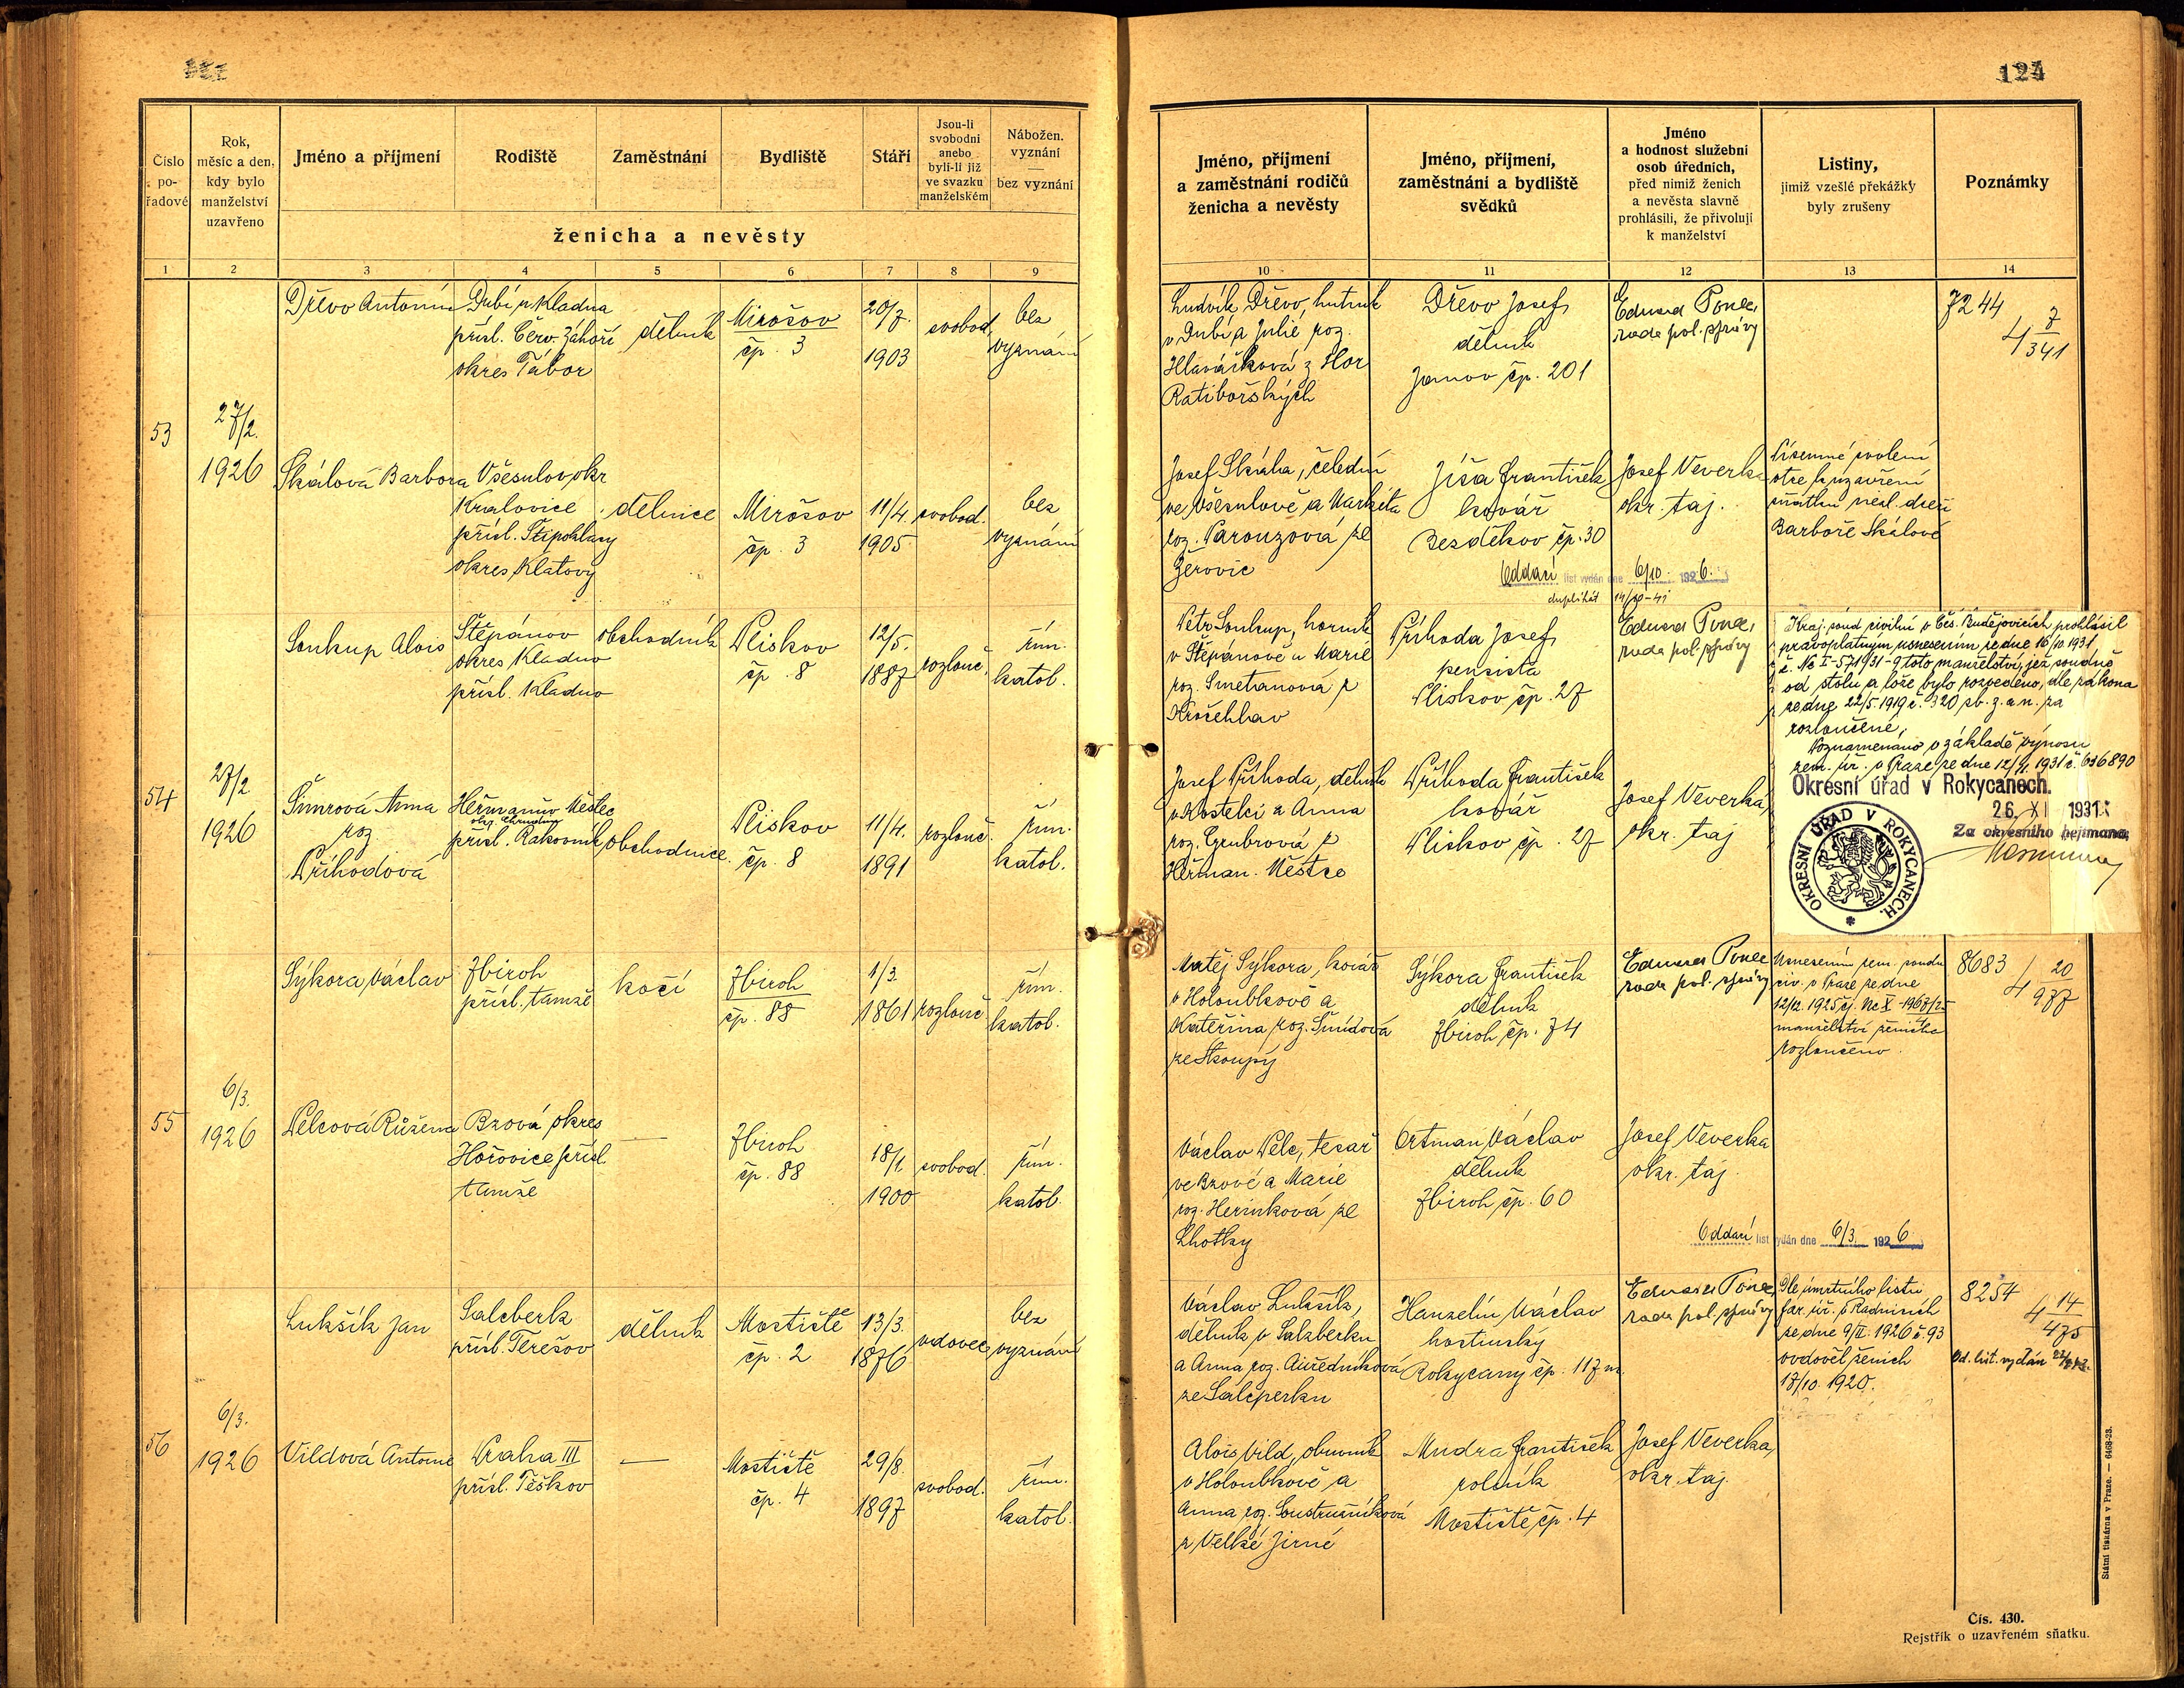 124
Číslo
po-
řadové
Rok,
měsíc a den,
kdy bylo
manželství
uzavřeno
Jméno a příjmení
Rodiště
Zaměstnání
Bydliště
Stáří
Jsou-li
svobodni
anebo
byli-li již
ve svazku
manželském
Nábožen.
vyznání
—
bez vyznání
ženicha a nevěsty
1 2 3 4 5 6 7 8 9
53
27/2.
1926
Dřevo Antonín
Dubí u Kladna
přísl. Červ. Záhoří
okres Tábor
dělník
Mirošov
čp. 3
20/7.
1903
svobod.
bez
vyznání
Skálová Barbora
Všesulov, okr
Kralovice
přísl. Štipoklasy
okres Klatovy
dělnice
Mirošov
čp. 3
11/4.
1905
svobod.
bez
vyznání
54
27/2
1926
Soukup Alois
Štěpánov
okres Kladno
přísl. Kladno
obchodník
Plískov
čp. 8
12/5.
1887
rozlouč.
řím.
katol.
Šimrová Anna
roz
Příhodová
Heřmanův Městec
okr. Chrudim
přísl. Rakovník
obchodnice
Plískov
čp. 8
11/4.
1891
rozlouč.
řím.
katol.
55
6/3.
1926
Sýkora Václav
Zbiroh
přísl. tamže
kočí
Zbiroh
čp. 88
1/3.
1861
rozlouč.
řím.
katol.
Pelcová Růžena
Bzová okres
Hořovice přísl.
tamže
—
Zbiroh
čp. 88
18/1.
1900
svobod.
řím.
katol.
56
6/3.
1926
Lukšík Jan
Salcberk
přísl. Terešov
dělník
Mostiště
čp. 2
13/3.
1876
vdovec
bez
vyznání
Vildová Antonie
Praha III
přísl. Těškov
—
Mostiště
čp. 4
29/8.
1897
svobod.
řím.
katol.
Jméno, příjmení
a zaměstnání rodičů
ženicha a nevěsty
Jméno, příjmení,
zaměstnání a bydliště
svědků
Jméno
a hodnost služební
osob úředních,
před nimiž ženich
a nevěsta slavně
prohlásili, že přivolují
k manželství
Listiny,
jimiž vzešlé překážky
byly zrušeny
Poznámky
10 11 12 13 14
Ludvík Dřevo, hutník
v Dubí a Julie roz.
Hlaváčková z Hor
Ratibořských
Dřevo Josef,
dělník
Janov čp. 201
Eduard Ponec,
rada pol. správy
7244
4 7
341
Josef Skála, čeledín
ve Všesulově a Markéta
roz. Parouzová ze
Žerovic
Jíša František
kovář
Bezděkov čp. 30
Josef Veverka
okr. taj.
Písemné svolení
otce k uzavření
sňatku nezl. dceři
Barboře Skálové
Oddací list vydán dne 6/10. 1926.
duplikát
Petr Soukup, horník
v Štěpánově a Marie
roz. Smetanová z
Kročehlav
Příhoda Josef,
pensista
Plískov čp. 27
Eduard Ponec,
rada pol. správy
Kraj. soud civilní v Čes. Budějovicích prohlásil
pravoplatným usnesením ze dne 16/10. 1931,
č. Nc I-571931-9 toto manželství, jež soudně
od stolu a lože bylo rozvedeno, dle zákona
ze dne 22/5 1919 č. 320 sb. z. a n. za
rozloučené,
Poznamenáno v základě výnosu
Okresní úřad v Rokycanech.
26. XI 1931
Za okresního hejtmana:
OKRESNÍ ÚŘAD V ROKYCANECH.
Josef Příhoda, dělník
v Kostelci a Anna
roz. Grubrová z
Heřman. Městce
Příhoda František
kovář
Plískov čp. 27
Josef Veverka,
okr. taj
Matěj Sýkora, kovář
v Holoubkově a
Kateřina roz. Šmídová
ze Skoupy
Sýkora František
dělník
Zbiroh čp. 74
Eduard Ponec
rada pol. správy
Usnesením zem. soudu
civ. v Praze ze dne
manželství ženicha
rozloučeno.
8683
4 20
977
Václav Pelc, tesař
ve Bzové a Marie
roz. Herinková ze
Lhotky
Ortman Václav
dělník
Zbiroh čp. 60
Josef Veverka
okr. taj.
Oddací list vydán dne 6/3. 1926
Václav Lukšík,
dělník v Salzberku
a Anna roz.
ze Salcperku
Hanzelín Václav
hostinský
Rokycany čp. 117
Eduard Ponec,
rada pol. správy
Dle úmrtního listu
far. úř. v Radnicích
ze dne 9/II. 1926 č. 93
ovdověl ženich
18/10. 1920.
8254
4 14
475
Od. list. vydán
Alois Vild, obuvník
v Holoubkově a
Anna roz. Soustružníková
z Velké Jirné
Mudra František
rolník
Mostiště čp. 4
Josef Veverka,
okr. taj.
Státní tiskárna v Praze. — 6468-23.
Čís. 430.
Rejstřík o uzavřeném sňatku.